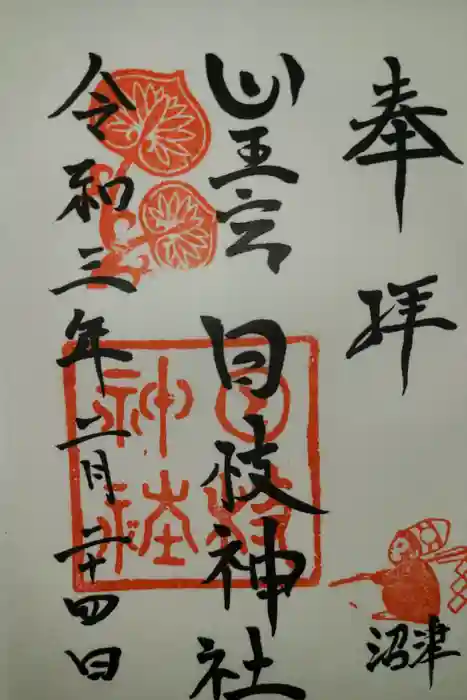 奉拝
沼津
山王宮 日枝神社
令和三年二月二十四日